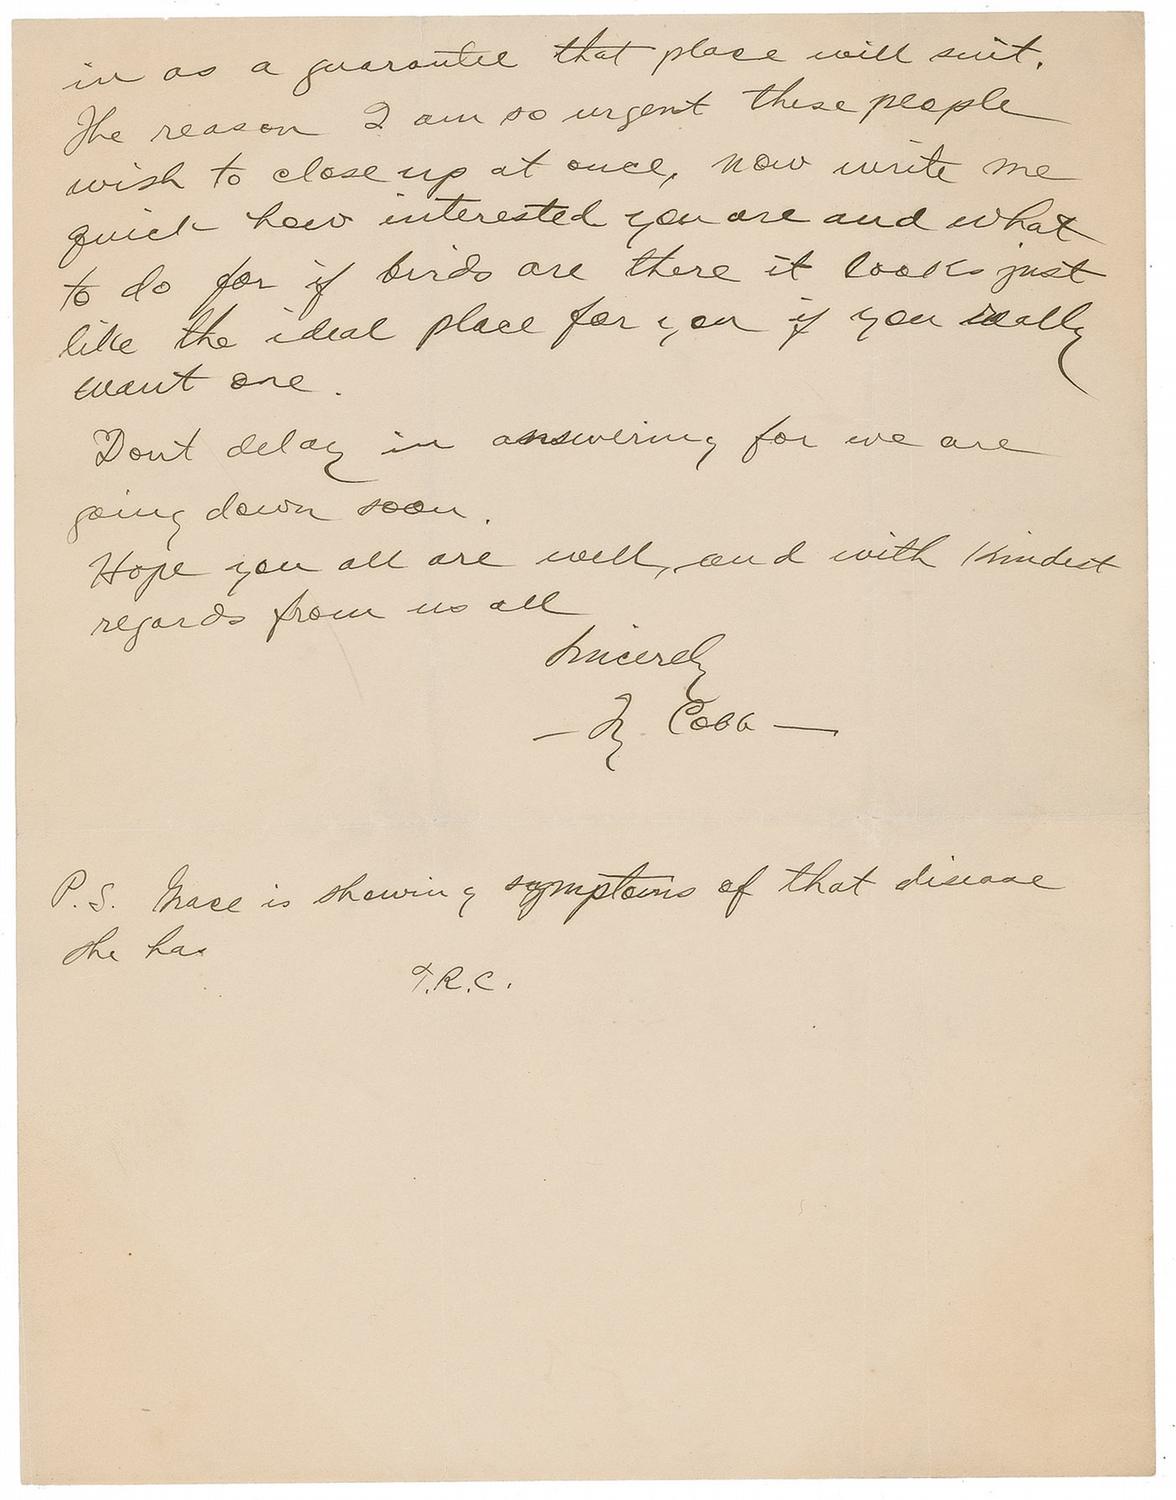 in as a guarantee that place will suit.
The reason I am so urgent these people
wish to close up at once, now write me
quick how interested you are and what
to do for if birds are there it looks just
like the ideal place for you if you really
want one.
Dont delay in answering for we are
going down soon.
Hope you all are well, and with Kindest
regards from us all
Sincerely
— Ty. Cobb —
P.S. Grace is showing symptoms of that disease
she has
T.R.C.